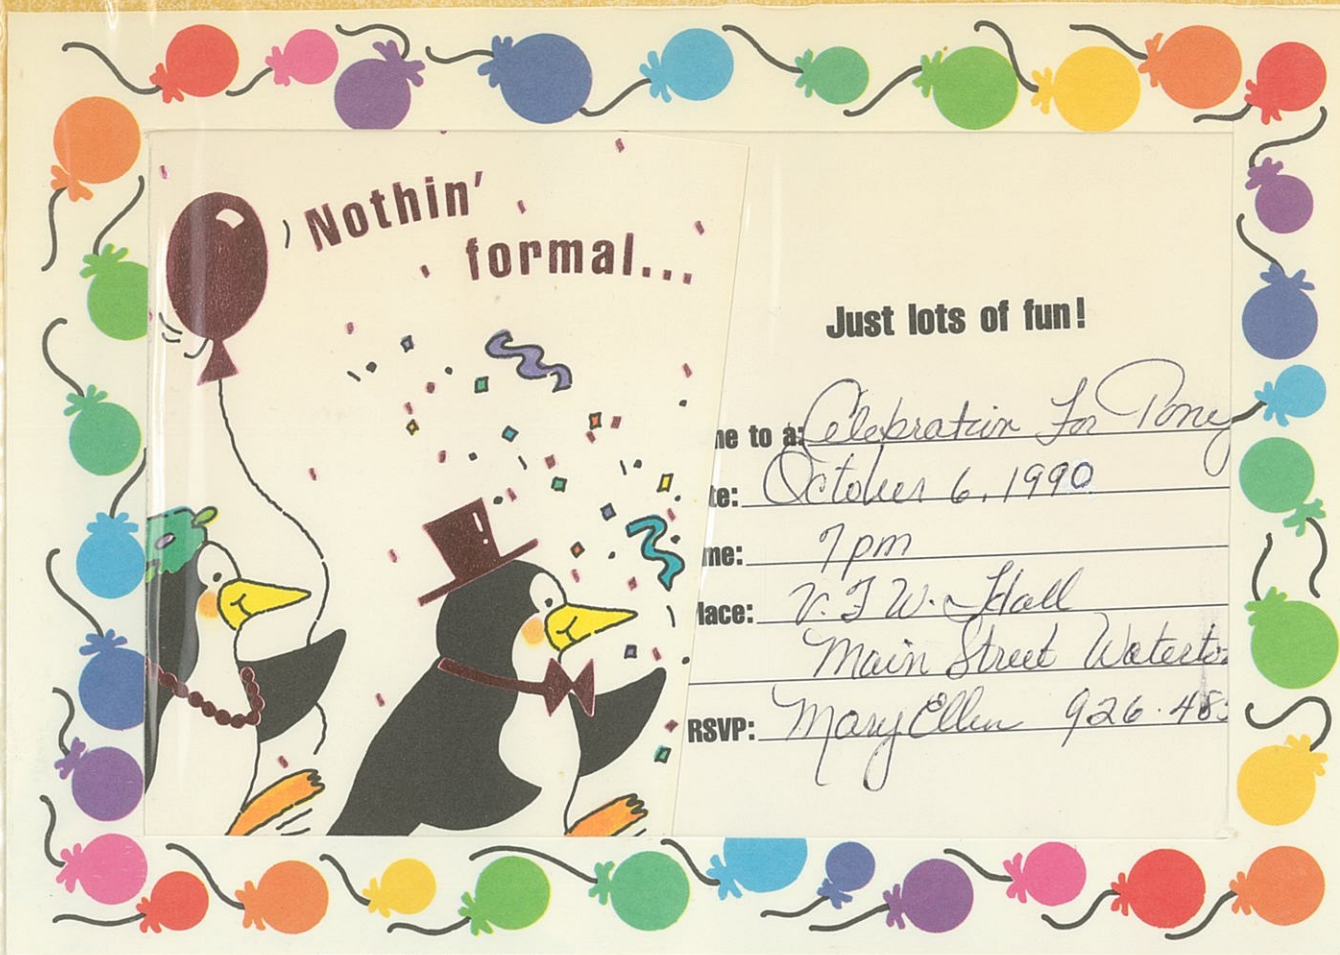 Nothin'
formal...
Just lots of fun!
me to a: Celebration For Tony
te: October 6, 1990
me: 7pm
lace: V.F.W. Hall
Main Street Waterto
RSVP: Mary Ellen 926-48